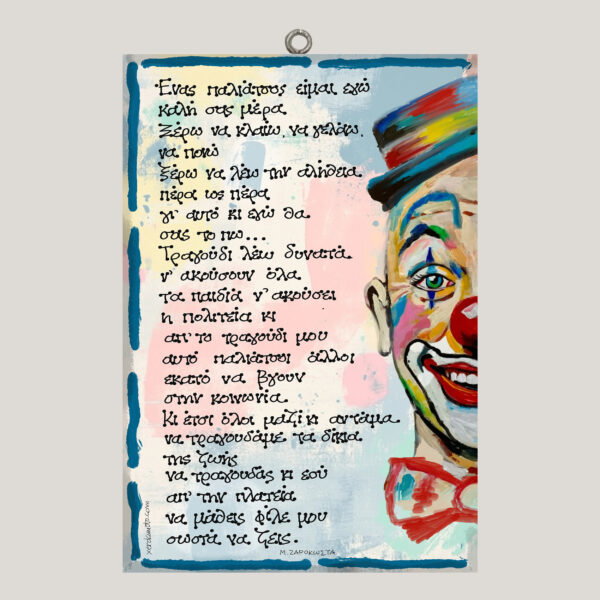 Ένας παλιάτσος είμαι εγώ
καλή σας μέρα
Ξέρω να κλαίω, να γελάω,
να πονώ
ξέρω να λέω την αλήθεια
πέρα ως πέρα
γι' αυτό κι εγώ θα
σας το πω...
Τραγούδι λέω δυνατά
ν' ακούσουν όλα
τα παιδιά ν' ακούσει
η πολιτεία κι
απ' το τραγούδι μου
αυτό παλιάτσοι άλλοι
εκατό να βγουν
στην κοινωνία.
Κι έτσι όλοι μαζί κι αντάμα
να τραγουδάμε τα δίκια
της ζωής
να τραγουδάς κι εσύ
απ' την πλατεία
να μάθεις φίλε μου
σωστά να ζεις.
Μ. ΖΑΡΟΚΩΣΤΑ